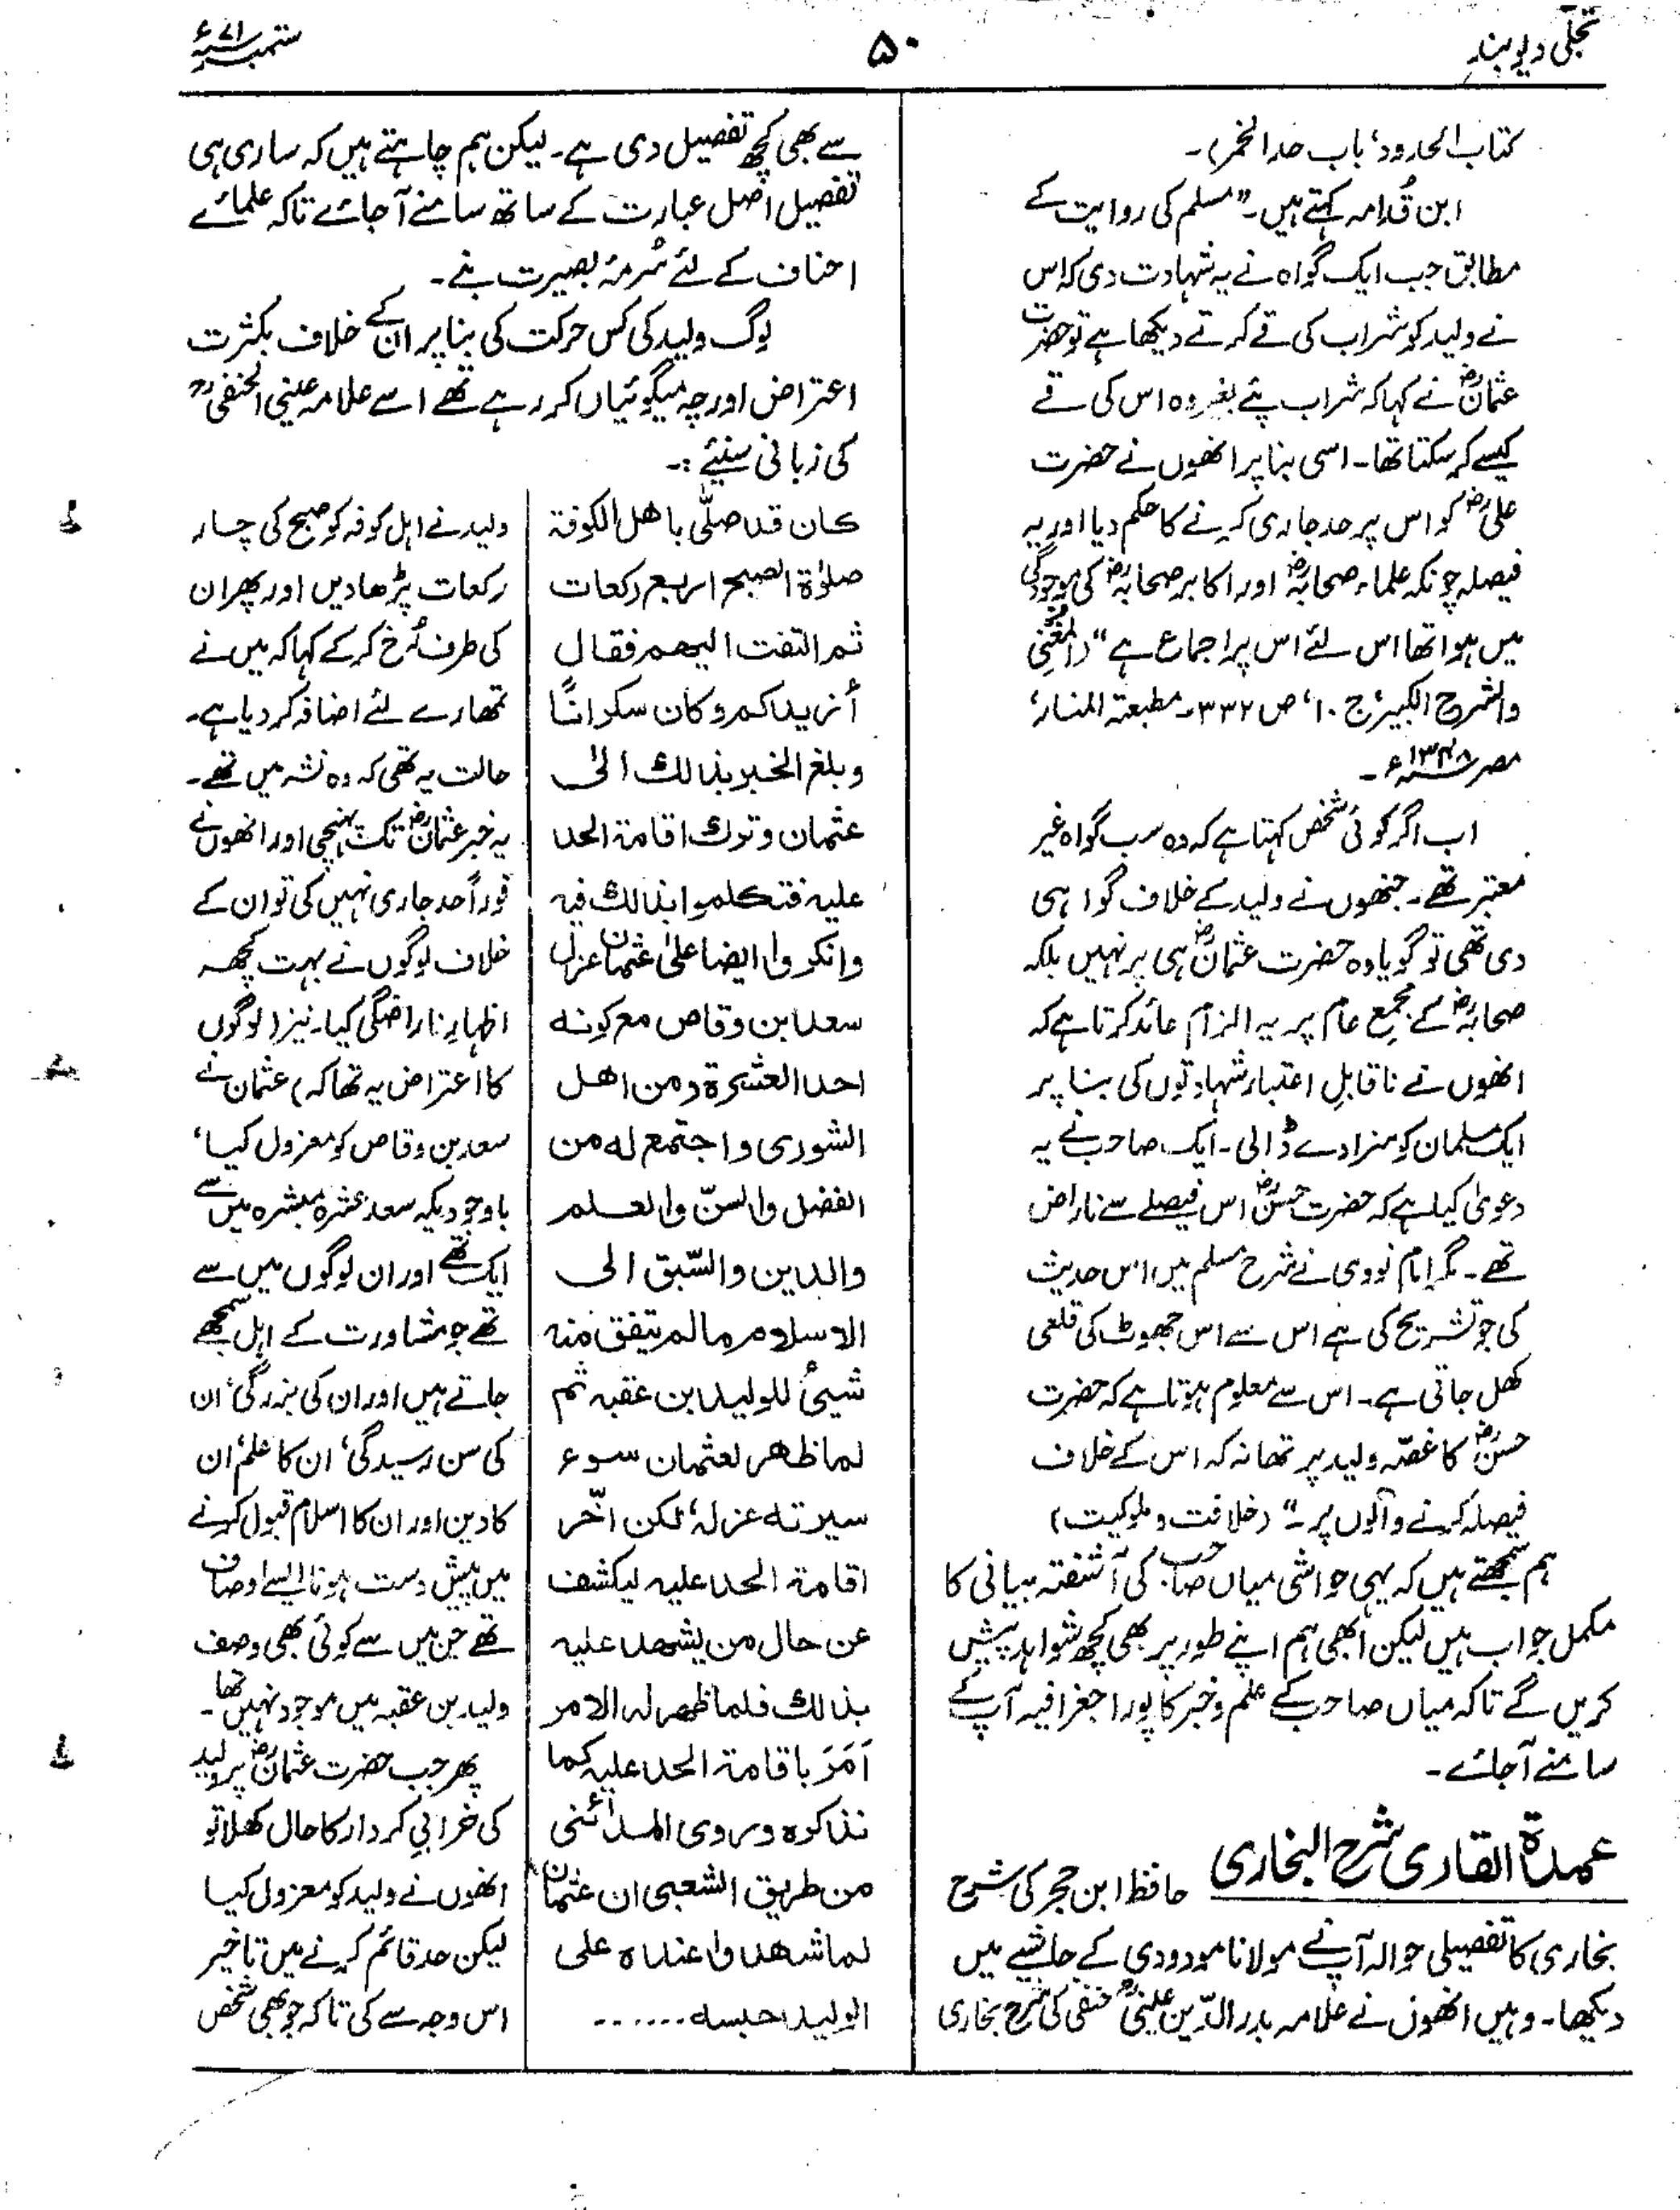 تجلی دیوبند
۵۰
ستمبر ۷۱ء
کتاب الحدود، باب حد الخمر)۔
ابن قُدامہ کہتے ہیں۔ "مسلم کی روایت کے
مطابق جب ایک گواہ نے یہ شہادت دی کہ اس
نے ولید کو شراب کی قے کرتے دیکھا ہے تو حضرت
عثمانؓ نے کہا کہ شراب پئے بغیر وہ اس کی قے
کیسے کر سکتا تھا۔ اسی بنا پر انھوں نے حضرت
علیؓ کو اس پر حد جاری کرنے کا حکم دیا اور یہ
فیصلہ چونکہ علماء صحابہؓ اور اکابر صحابہؓ کی موجودگی
میں ہوا تھا اس لئے اس پر اجماع ہے" (المغنی
والشرح الکبیر، ج ۱۰، ص ۳۳۲۔ مطبعۃ المنار،
مصر ۱۳۴۸ء۔
اب اگر کوئی شخص کہتا ہے کہ وہ سب گواہ غیر
معتبر تھے۔ جنھوں نے ولید کے خلاف گواہی
دی تھی تو گویا وہ حضرت عثمانؓ ہی پر نہیں بلکہ
صحابہؓ کے مجمع عام پر یہ الزام عائد کرتا ہے کہ
انھوں نے ناقابلِ اعتبار شہادتوں کی بنا پر
ایک مسلمان کو سزا دے ڈالی۔ ایک صاحب نے یہ
دعویٰ کیا ہے کہ حضرت حسنؓ اس فیصلے سے ناراض
تھے۔ مگر امام نووی نے شرح مسلم میں اس حدیث
کی جو تشریح کی ہے اس سے اس جھوٹ کی قلعی
کھل جاتی ہے۔ اس سے معلوم ہوتا ہے کہ حضرت
حسنؓ کا غصّہ ولید پر تھا نہ کہ اس کے خلاف
فیصلہ کرنے والوں پر۔" (خلافت و ملوکیت)
ہم سمجھتے ہیں کہ یہی حواشی میاں صاحب کی آشفتہ بیانی کا
مکمل جواب ہیں لیکن ابھی ہم اپنے طور پر بھی کچھ شواہد پیش
کریں گے تاکہ میاں صاحب کے علم و خبر کا پورا جغرافیہ آپ کے
سامنے آجائے۔
عمدۃ القاری شرح البخاری حافظ ابن حجر کی شرح
بخاری کا تفصیلی حوالہ آپ نے مولانا مودودی کے حاشیے میں
دیکھا۔ وہیں انھوں نے علامہ بدر الدّین عینیؒ حنفی کی شرح بخاری
سے بھی کچھ تفصیل دی ہے۔ لیکن ہم چاہتے ہیں کہ ساری ہی
تفصیل اصل عبارت کے ساتھ سامنے آجائے تاکہ علمائے
احناف کے لئے سُرمۂ بصیرت بنے۔
لوگ ولید کی کس حرکت کی بنا پر ان کے خلاف بکثرت
اعتراض اور چہ میگوئیاں کر رہے تھے اسے علامہ عینی الحنفیؒ
کی زبانی سنیئے:۔
کان قد صلّی باھل الکوفۃ
صلوٰۃ الصبح اربع رکعات
ثم التفت الیھم فقال
أزیدکم وکان سکرانًا
وبلغ الخبر بذالک الیٰ
عثمان وترک اقامۃ الحد
علیہ فتکلموا بذالک فیہ
وانکروا ایضا علیٰ عثمان عزل
سعد ابن وقاص مع کونہ
احد العشرۃ ومن اھل
الشوریٰ واجتمع لہ من
الفضل والسنّ والعلم
والدین والسّبق الی
الاسلام مالم یتفق منہ
شیئ للولید ابن عقبہ ثم
لما ظھر لعثمان سوء
سیرتہ عزلہ، لکن اخّر
اقامۃ الحد علیہ لیکشف
عن حال من یشھد علیہ
بذالک فلما ظھر لہ الامر
اَمَرَ باقامۃ الحد علیہ کما
نذکرہ وروی المدائنی
من طریق الشعبی ان عثمان
لما شھدوا عندہ علی
الولید حبسہ.......
ولید نے اہل کوفہ کو صبح کی چار
رکعات پڑھا دیں اور پھر ان
کی طرف رُخ کر کے کہا کہ میں نے
تمھارے لئے اضافہ کر دیا ہے۔
حالت یہ تھی کہ وہ نشہ میں تھے۔
یہ خبر عثمانؓ تک پہنچی اور انھوں نے
فوراً حد جاری نہیں کی تو ان کے
خلاف لوگوں نے بہت کچھ
اظہارِ ناراضگی کیا۔ نیز (لوگوں
کا اعتراض یہ تھا کہ) عثمان نے
سعد بن وقاص کو معزول کیا،
باوجودیکہ سعد عشرہ مبشرہ میں سے
ایک تھے اور ان لوگوں میں سے
تھے جو مشاورت کے اہل سمجھے
جاتے ہیں اور ان کی بزرگی، ان
کی سن رسیدگی، ان کا علم، ان
کا دین اور ان کا اسلام قبول کرنے
میں پیش دست ہونا ایسے اوصاف
تھے جن میں سے کوئی بھی وصف
ولید بن عقبہ میں موجود نہیں تھا۔
پھر جب حضرت عثمانؓ پر ولید
کی خرابیِ کردار کا حال کھلا تو
انھوں نے ولید کو معزول کیا
لیکن حد قائم کرنے میں تاخیر
اس وجہ سے کی تاکہ جو بھی شخص